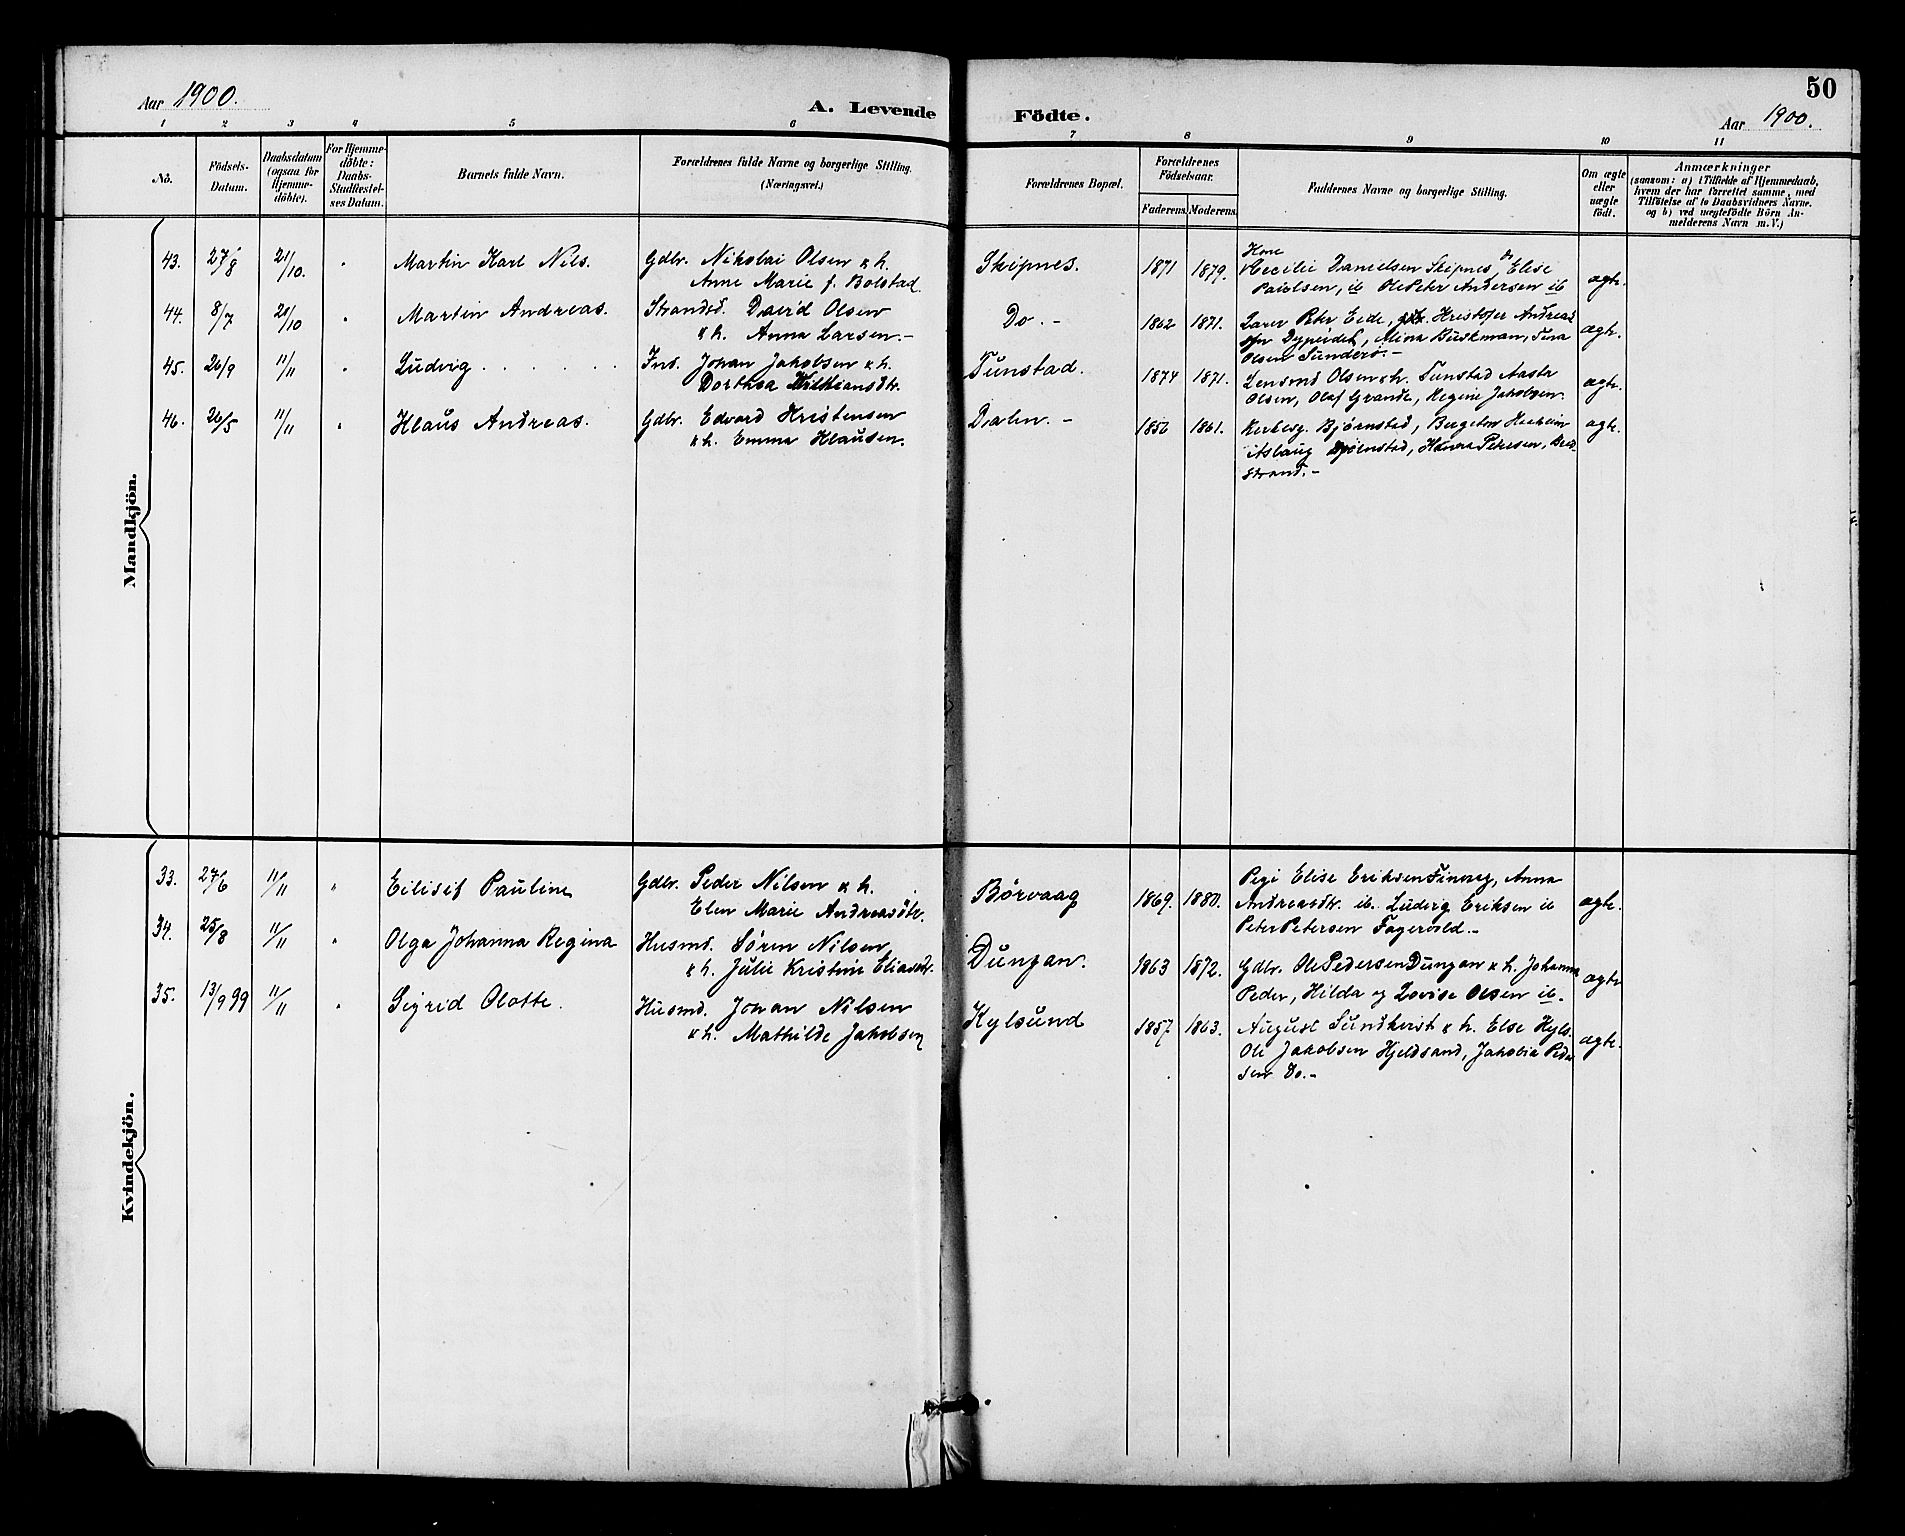 Aar 1900.
A. Levende
Födte.
50
Aar 1900.
1 2 3 4 5 6 7 8 9 10 11
No.
Födsels-
Datum.
Daabsdatum
(ogsaa for
Hjemme-
døbte).
For Hjemme-
døbte:
Daabs-
Stadfæstel-
ses Datum.
Barnets fulde Navn.
Forældrenes fulde Navne og borgerlige Stilling.
(Næringsvei.)
Forældrenes Bopæl.
Forældrenes
Födselsaar.
Faderens. Moderens.
Faddernes Navne og borgerlige Stilling.
Om ægte
eller
uægte
födt.
Anmærkninger
(saasom: a) i Tilfælde af Hjemmedaab,
hvem der har forrettet samme, med
Tilföielse af to Daabsvidners Navne.
og b) ved uægtefödte Börn An-
melderens Navn m. V.)
Mandkjön.
43. 27/8 21/10. " Martin Karl Nils. Gdbr. Nikolai Olsen & h.
Anne Marie f. Bolstad.
Skipnes. 1871 1879. Kone
Cecilie Danielsen Skipnes, Elise
Paulsen, ib Ole Peter Andersen ib ægte.
44. 8/7 21/10 " Martin Andreas. Strands. David Olsen
& h. Anna Larsen.-
Do.- 1862 1871. Eide, Kristofer Andreas
Mina Buskman, Tina
Olsen ægte.
45. 26/9 11/11 " Ludvig . . . . . . Ind. Johan Jakobsen & h.
Dorthea
Tunstad. 1874 1871. Lensmd Olsen & h. Tunstad Aasta
Olsen, Olaf Grande, Regine Jakobsen. ægte.
46. 26/5 11/11 " Klaus Andreas. Gdbr. Edvard Kristensen
& h. Emma Klausen.
Dalen.- 1856 1861. Kirkesg. Bjørnstad,
Aslaug Bjørnstad, Hanna Petersen,
strand.- ægte.
Kvindekjön.
33. 27/6 11/11 " Eilisif Pauline Gdbr. Peder Nilsen & h.
Elen Marie Andreasdtr.
Børvaag 1869. 1880. Pigi Elise Eriksen Finvag, Anna
Andreasdtr. ib. Ludvig Eriksen ib
Peter Petersen Fagervold.- ægte.
34. 25/8 11/11 " Olga Johanna Regina Husmd. Søren Nilsen
& h. Julie Kristine Eliasdtr.
Dungan. 1863 1872. Gdbr. Ole Pedersen Dungan & h. Johanna
Peder, Hilda og Lovise Olsen ib. ægte
35. 13/9 99 11/11 " Sigrid Olotte. Husmd. Johan Nilsen
& h. Mathilde Jakobsen
Kylsund 1857 1863. August Sundkvist & h. Else Hyls.
Ole Jakobsen Hjeldsand, Jakobia Peder
sen Do.- ægte.